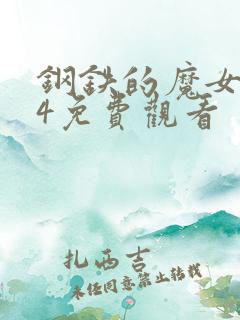 鋼鉄的魔女
4免費觀看
扎西吉
未经同意禁止转载